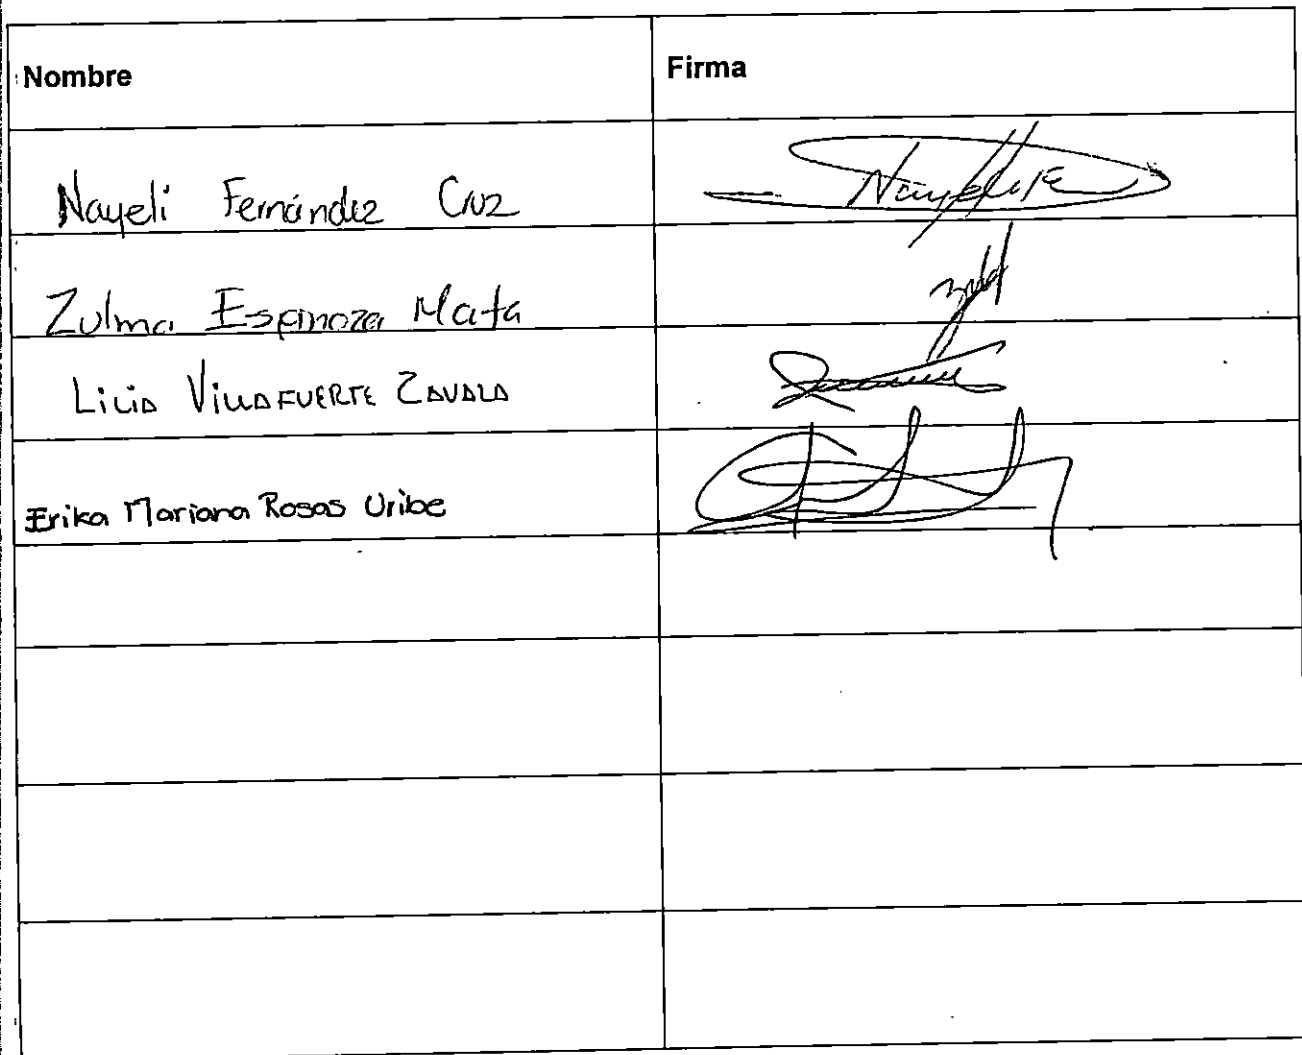 Nombre Firma
Nayeli Fernández Cruz Nayeli
Zulma Espinoza Mata
Licia VILLAFUERTE ZAVALA
Erika Mariana Rosas Uribe